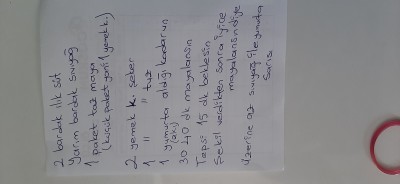 2 bardak ılık süt
Yarım bardak sıvıyağ
1 paket toz maya
(küçük paket yani 1 yemek k.)
2 yemek k. şeker
1 " " tuz
1 yumurta aldığı kadar un
(akı)
30 40 dk mayalansın
15 dk beklesin
Şekil verdikten sonra iyice
mayalansın diye
Üzerine az sıvıyağ ile yumurta
sarısı